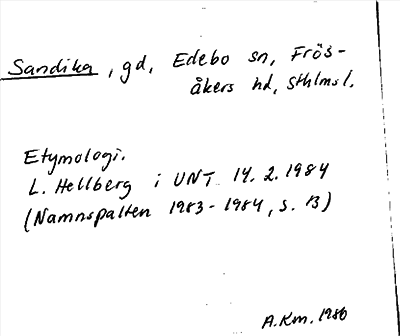 Sandika, gd, Edebo sn, Frös-
åkers hd, Sthlms l.
Etymologi.
L. Hellberg i UNT 14. 2. 1984
(Namnspalten 1983-1984, s. 13)
A.Km. 1986